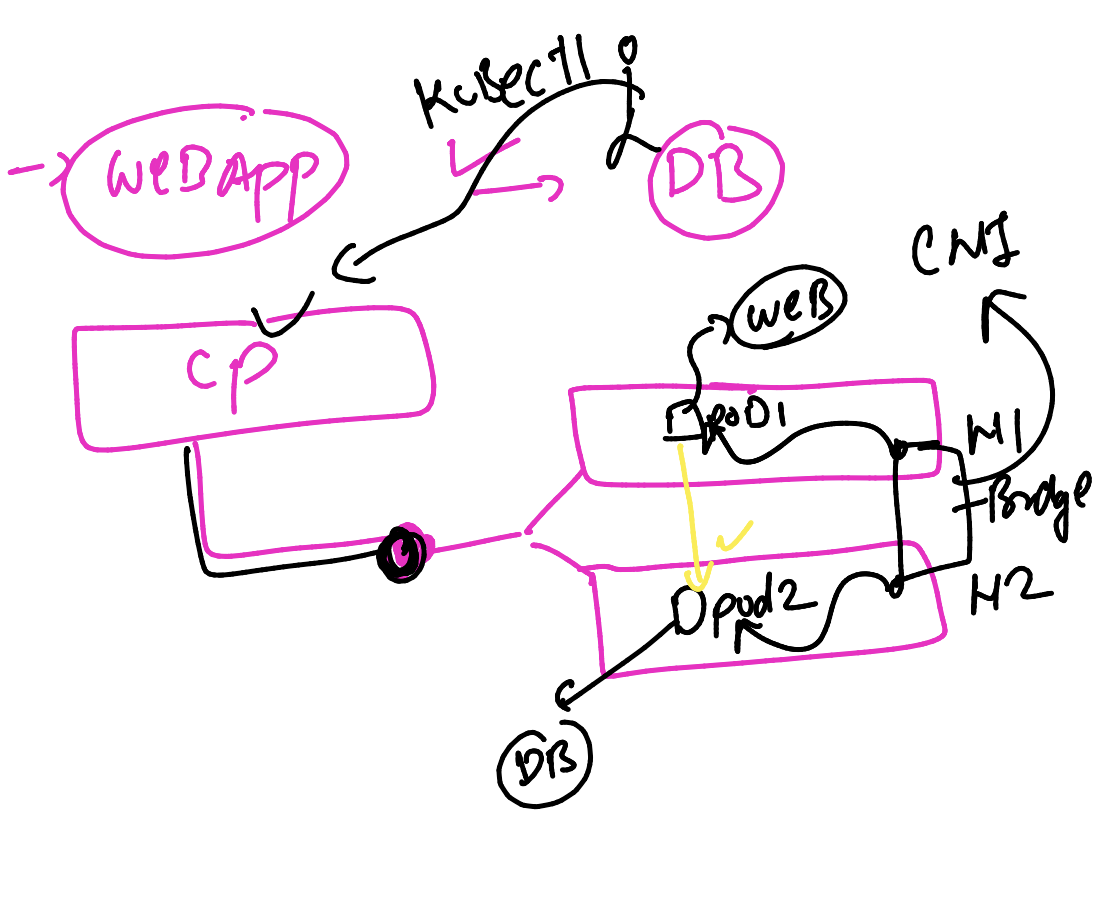 KuBeCTl
WeBApp
DB
CNI
WeB
CP
PoD1
N1
Bridge
Pod2
N2
DB